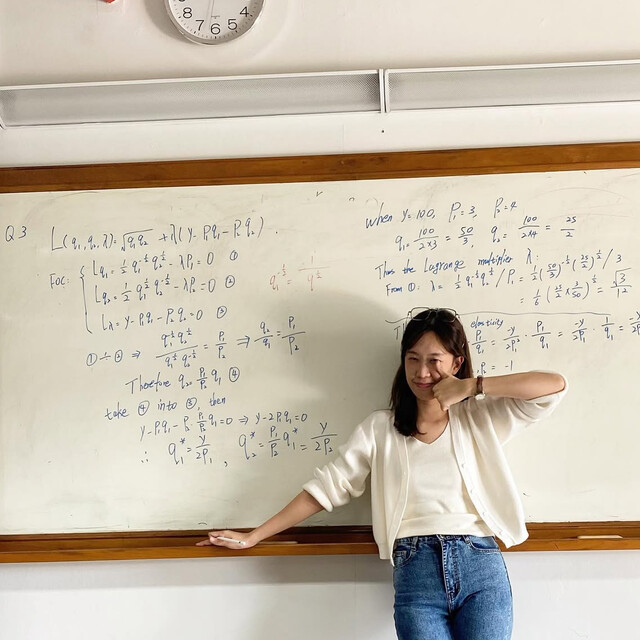 8 7 6 5 4
Q3 L(q₁,q₂,λ)=√q₁q₂ +λ(y-P₁q₁-P₂q₂).
FOC: { Lq₁=½q₁^-½q₂^½-λP₁=0 ①
Lq₂=½q₁^½q₂^-½-λP₂=0 ②
Lλ=y-P₁q₁-P₂q₂=0 ③
q₁^-½=1/q^½
①÷② ⇒ q₁^-½q₂^½/q₁^½q₂^-½=P₁/P₂ ⇒ q₂/q₁=P₁/P₂
Therefore q₂=P₁/P₂ q₁ ④
take ④ into ③, then
y-P₁q₁-P₂·P₁/P₂q₁=0 ⇒ y-2P₁q₁=0
∴ q₁*=y/2P₁, q₂*=P₁/P₂q₁*=y/2P₂
When y=100, P₁=3, P₂=4
q₁=100/2×3=50/3, q₂=100/2×4=25/2
Then the Lagrange multiplier λ:
From ①: λ=½q₁^-½q₂^½/P₁=½(50/3)^-½(25/2)^½/3
=⅙(25/2×3/50)^½=√3/12
elasticity
P₁/q₁=-y/2P₁²·P₁/q₁=-y/2P₁·1/q₁=-y/
=-1